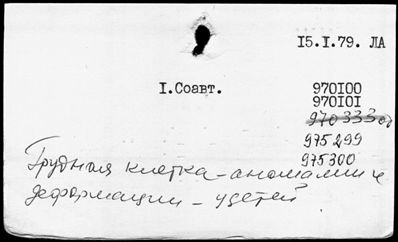 15.I.79. ЛА
I.Соавт. 970I00
970I0I
975299
975300
Грудная клетка - аномалии и
деформации - у детей